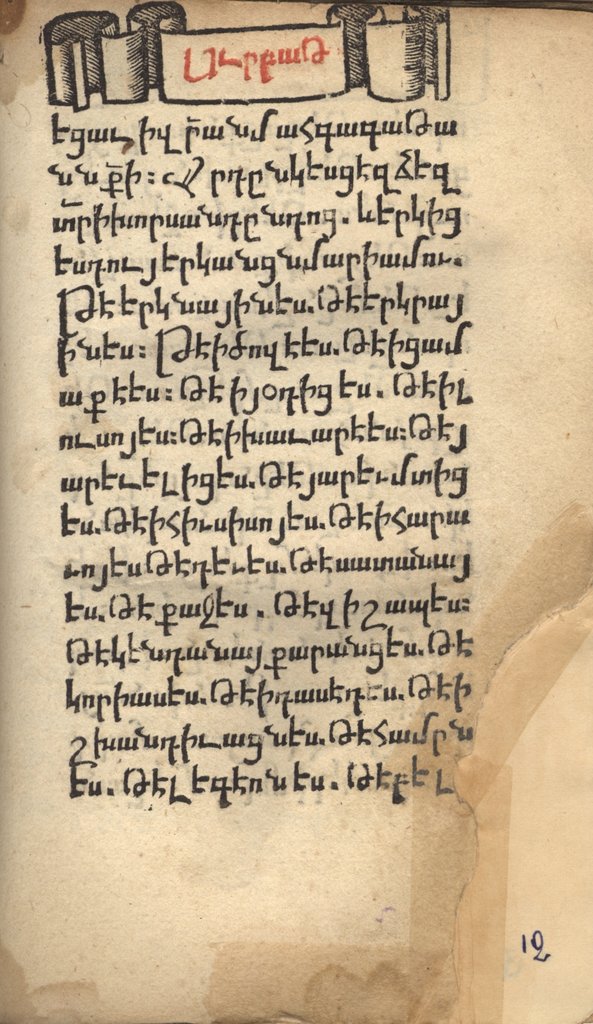 Ուրբաթ
եցաւ իվ ր̄ա նմ ահգագաթա
նս ք̄ի ։ Հրդընկեսցեզձեզ
տ̄րիխորսանդընդոց . ևերկից
եսդույերկանցնմարիամու .
Թէերկնայինես . թէերկրայ
ինես ։ Թէիծովէես . թէիցամ
աքէես ։ թէ իյօդից ես . թէիլ
ուսոյես ։ թէիխաւարէես ։ թէյ
արեւելիցես . թէյարեւմտից
ես . թէիհիւսիսոյես . թէիհարա
ւոյես թէդեւես . թէսատանայ
ես . թէ քաջես . թէվիշապես ։
թէկենդանայքարանցես . թէ
կորիասես . թէիդասեդես . թէի
շխանդիւացնես . թէհամրն
ես . թէլեգէոնես . թէբել
12